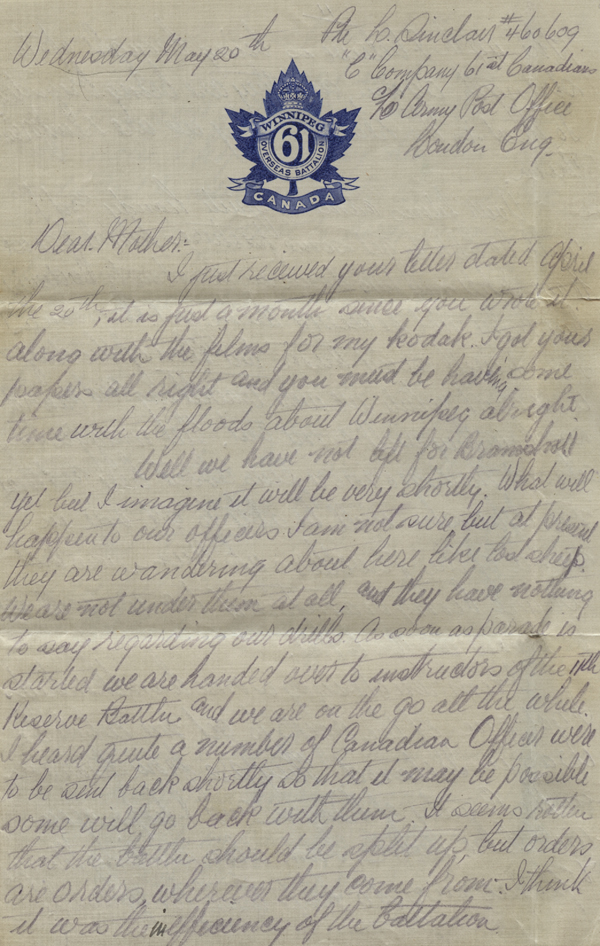 Wednesday May 20th
Pte L. Sinclair #460609
"C" Company 61st Canadians
C/o Army Post Office
London Eng.
WINNIPEG
61
OVERSEAS BATTALION
CANADA
Dear Mother:
I just received your letter dated April
the 20th, it is just a month since you wrote it
along with the films for my kodak. I got your
papers all right and you must be having some
time with the floods about Winnipeg alright.
Well we have not left for Bramshott
yet but I imagine it will be very shortly. What will
happen to our officers I am not sure, but at present
they are wandering about here like lost sheep.
We are not under them at all, and they have nothing
to say regarding our drills. As soon as parade is
started we are handed over to instructors of the 11th
Reserve Battln and we are on the go all the while.
I heard quite a number of Canadian Officers were
to be sent back shortly so that it may be possible
some will go back with them. It seems rotten
that the battln should be split up, but orders
are orders, wherever they come from. I think
it was the inefficiency of the battalion